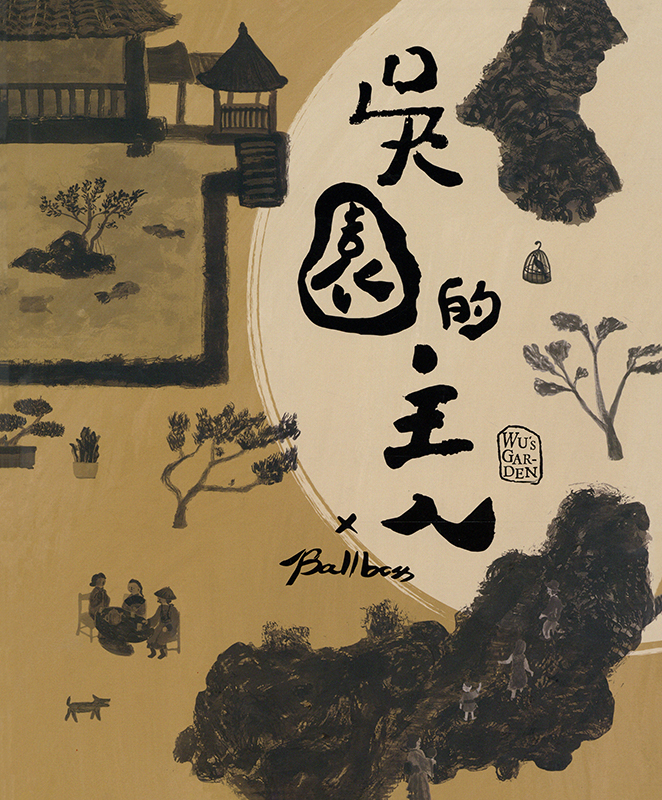 吳園的主人
WU'S
GAR-
DEN
×
Ballboss